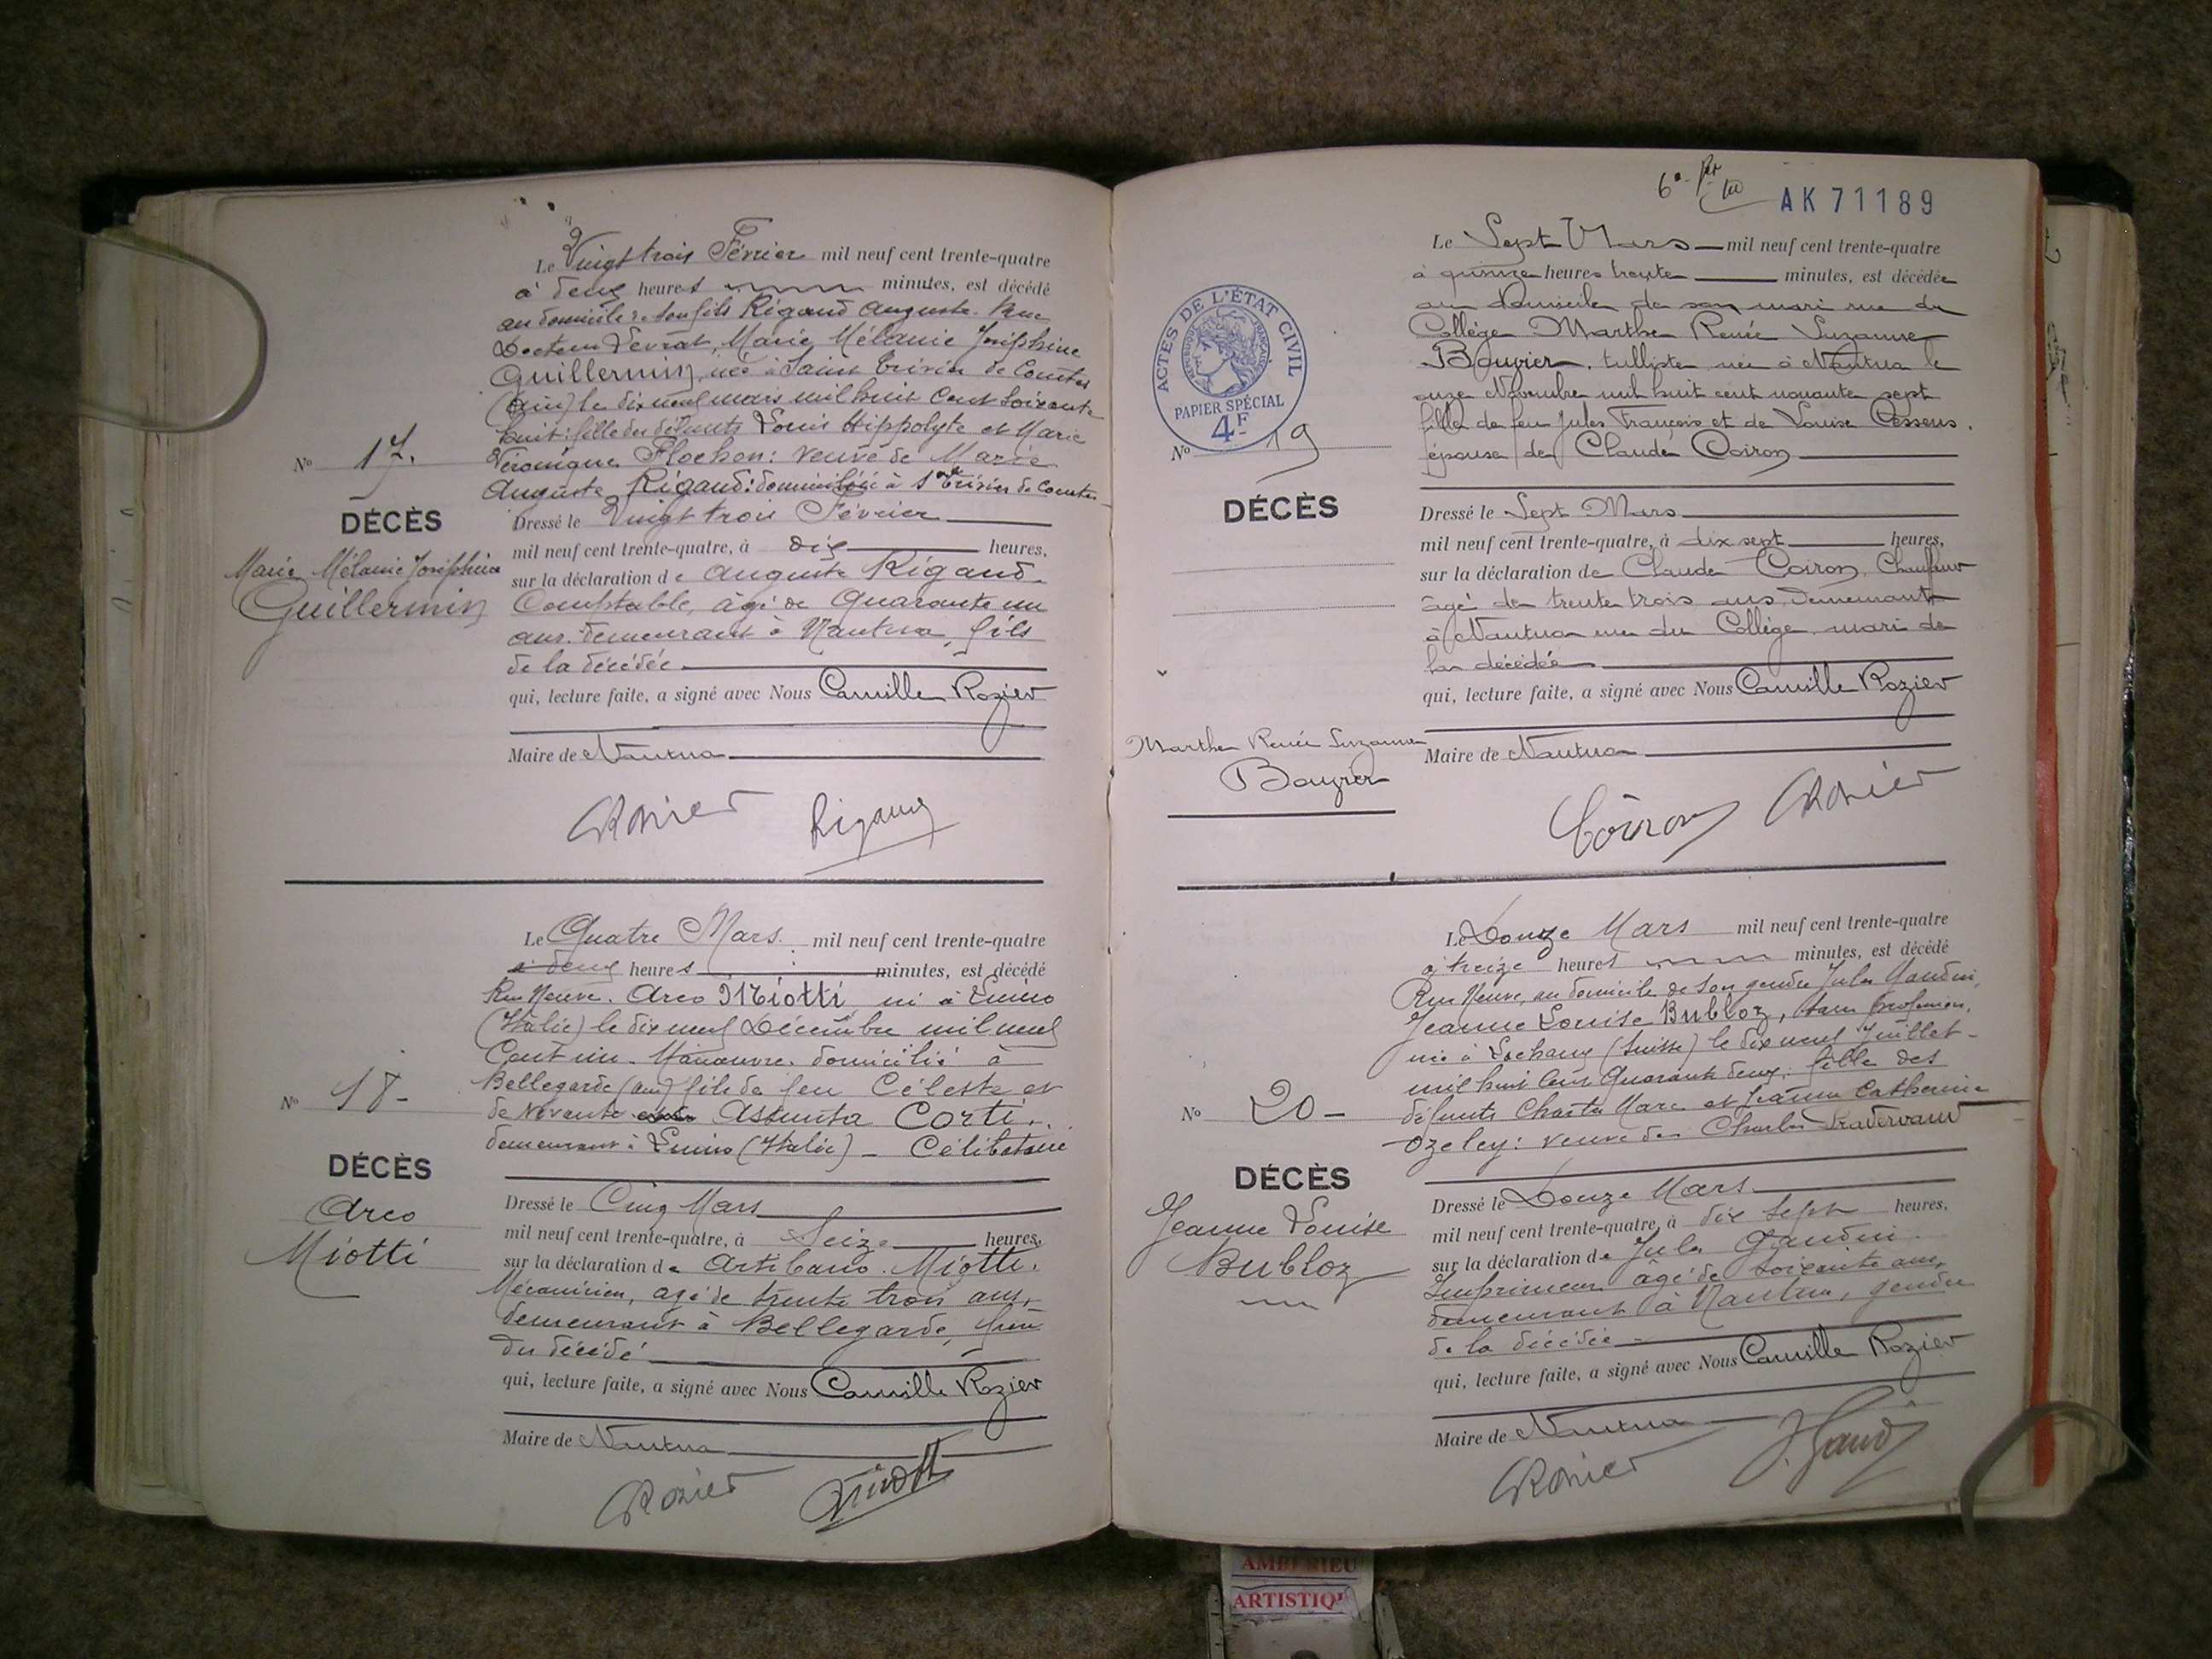 Le Vingt trois Février mil neuf cent trente-quatre
à deux heures minutes, est décédé
au domicile de son fils Rigaud Auguste. Rue
Docteur Levrat, Marie Mélanie Joséphine
Guillermin, née à Saint Trivier de Courtes
(Ain) le dix neuf mars mil huit Cent Soixante
huit: fille des défunts Louis Hippolyte et Marie
Véronique Flochon: veuve de Marie
Auguste Rigaud: domiciliée à St Trivier de Courtes
No 17.
DÉCÈS
Marie Mélanie Joséphine
Guillermin
Dressé le Vingt trois Février
mil neuf cent trente-quatre, à dix heures,
sur la déclaration de Auguste Rigaud
Comptable, âgé de Quarante un
ans. demeurant à Nantua, fils
de la décédée
qui, lecture faite, a signé avec Nous Camille Rozier
Maire de Nantua
Rozier Rigaud
Le Quatre Mars mil neuf cent trente-quatre
à deux heures minutes, est décédé
Rue Neuve. Arco Miotti né à Luino
(Italie) le dix neuf Décembre mil neuf
Cent un. Manœuvre. domicilié à
Bellegarde (Ain) fils de feu Céleste et
de Vivante Assunta Corti.
demeurant à Luino (Italie) - Célibataire
No 18-
DÉCÈS
Arco
Miotti
Dressé le Cinq Mars
mil neuf cent trente-quatre, à Seize heures,
sur la déclaration de Artibano Miotti.
Mécanicien, agé de trente trois ans,
demeurant à Bellegarde, frère
du décédé
qui, lecture faite, a signé avec Nous Camille Rozier
Maire de Nantua
Rozier Miotti
AK 71189
ACTES DE L'ÉTAT CIVIL
RÉPUBLIQUE FRANÇAISE
PAPIER SPÉCIAL
4F
Le Sept Mars mil neuf cent trente-quatre
à quinze heures trente minutes, est décédée
au domicile de son mari rue du
Collège Marthe Renée Suzanne
Bouvier, tulliste, née à Nantua le
onze Novembre mil huit cent nonante sept
fille de feu Jules François et de Louise Cessens.
épouse de Claude Coiron
No 19
DÉCÈS
Marthe Renée Suzanne
Dressé le Sept Mars
mil neuf cent trente-quatre, à dix sept heures,
sur la déclaration de Claude Coiron, Chauffeur
âgé de trente trois ans demeurant
à Nantua rue du Collège. mari de
la décédée
qui, lecture faite, a signé avec Nous Camille Rozier
Maire de Nantua
Coiron Rozier
Le Douze Mars mil neuf cent trente-quatre
à treize heures minutes, est décédé
Rue Neuve, au domicile de son gendre Jules
Jeanne Louise Bubloz, sans profession,
née à (Suisse) le dix neuf Juillet
mil huit Cent Quarante deux: fille des
défunts Charles Marc et Jeanne Catherine
Ozeley: veuve de Charles Pradervand
No 20-
DÉCÈS
Jeanne Louise
Bubloz
Dressé le Douze Mars
mil neuf cent trente-quatre, à dix sept heures,
sur la déclaration de Jules
Imprimeur âgé de soixante ans,
demeurant à Nantua, gendre
de la décédée
qui, lecture faite, a signé avec Nous Camille Rozier
Maire de Nantua
Rozier
AMBERIEU
ARTISTIQ